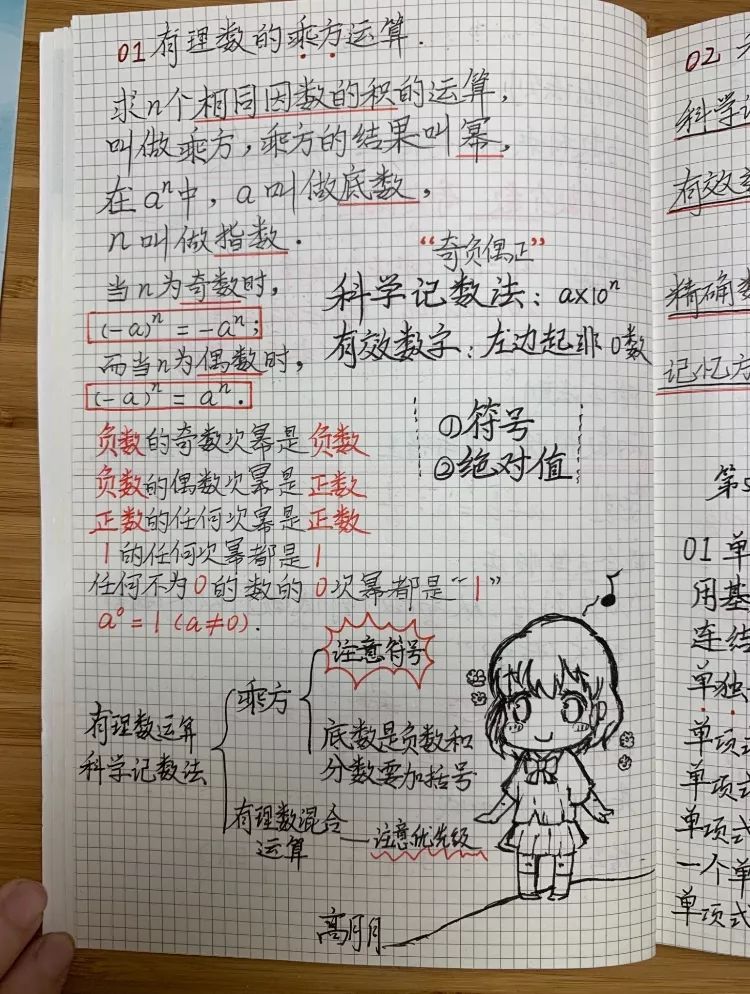 01 有理数的乘方运算.
求n个相同因数的积的运算,
叫做乘方,乘方的结果叫幂,
在aⁿ中, a叫做底数,
n叫做指数.
当n为奇数时,
(-a)ⁿ = -aⁿ;
而当n为偶数时,
(-a)ⁿ = aⁿ.
“奇负偶正”
科学记数法: a×10ⁿ
有效数字: 左边起非0数
①符号
②绝对值
负数的奇数次幂是负数
负数的偶数次幂是正数
正数的任何次幂是正数
1的任何次幂都是1
任何不为0的数的0次幂都是“1”
a⁰ = 1 (a≠0).
有理数运算
科学记数法
乘方
注意符号
底数是负数和
分数要加括号
有理数混合
运算
注意优先级
高月月
02
科学记
有效数
精确数
记忆方
第5
01 单
用基
连结
单独
单项式
单项式
单项式
一个单
单项式